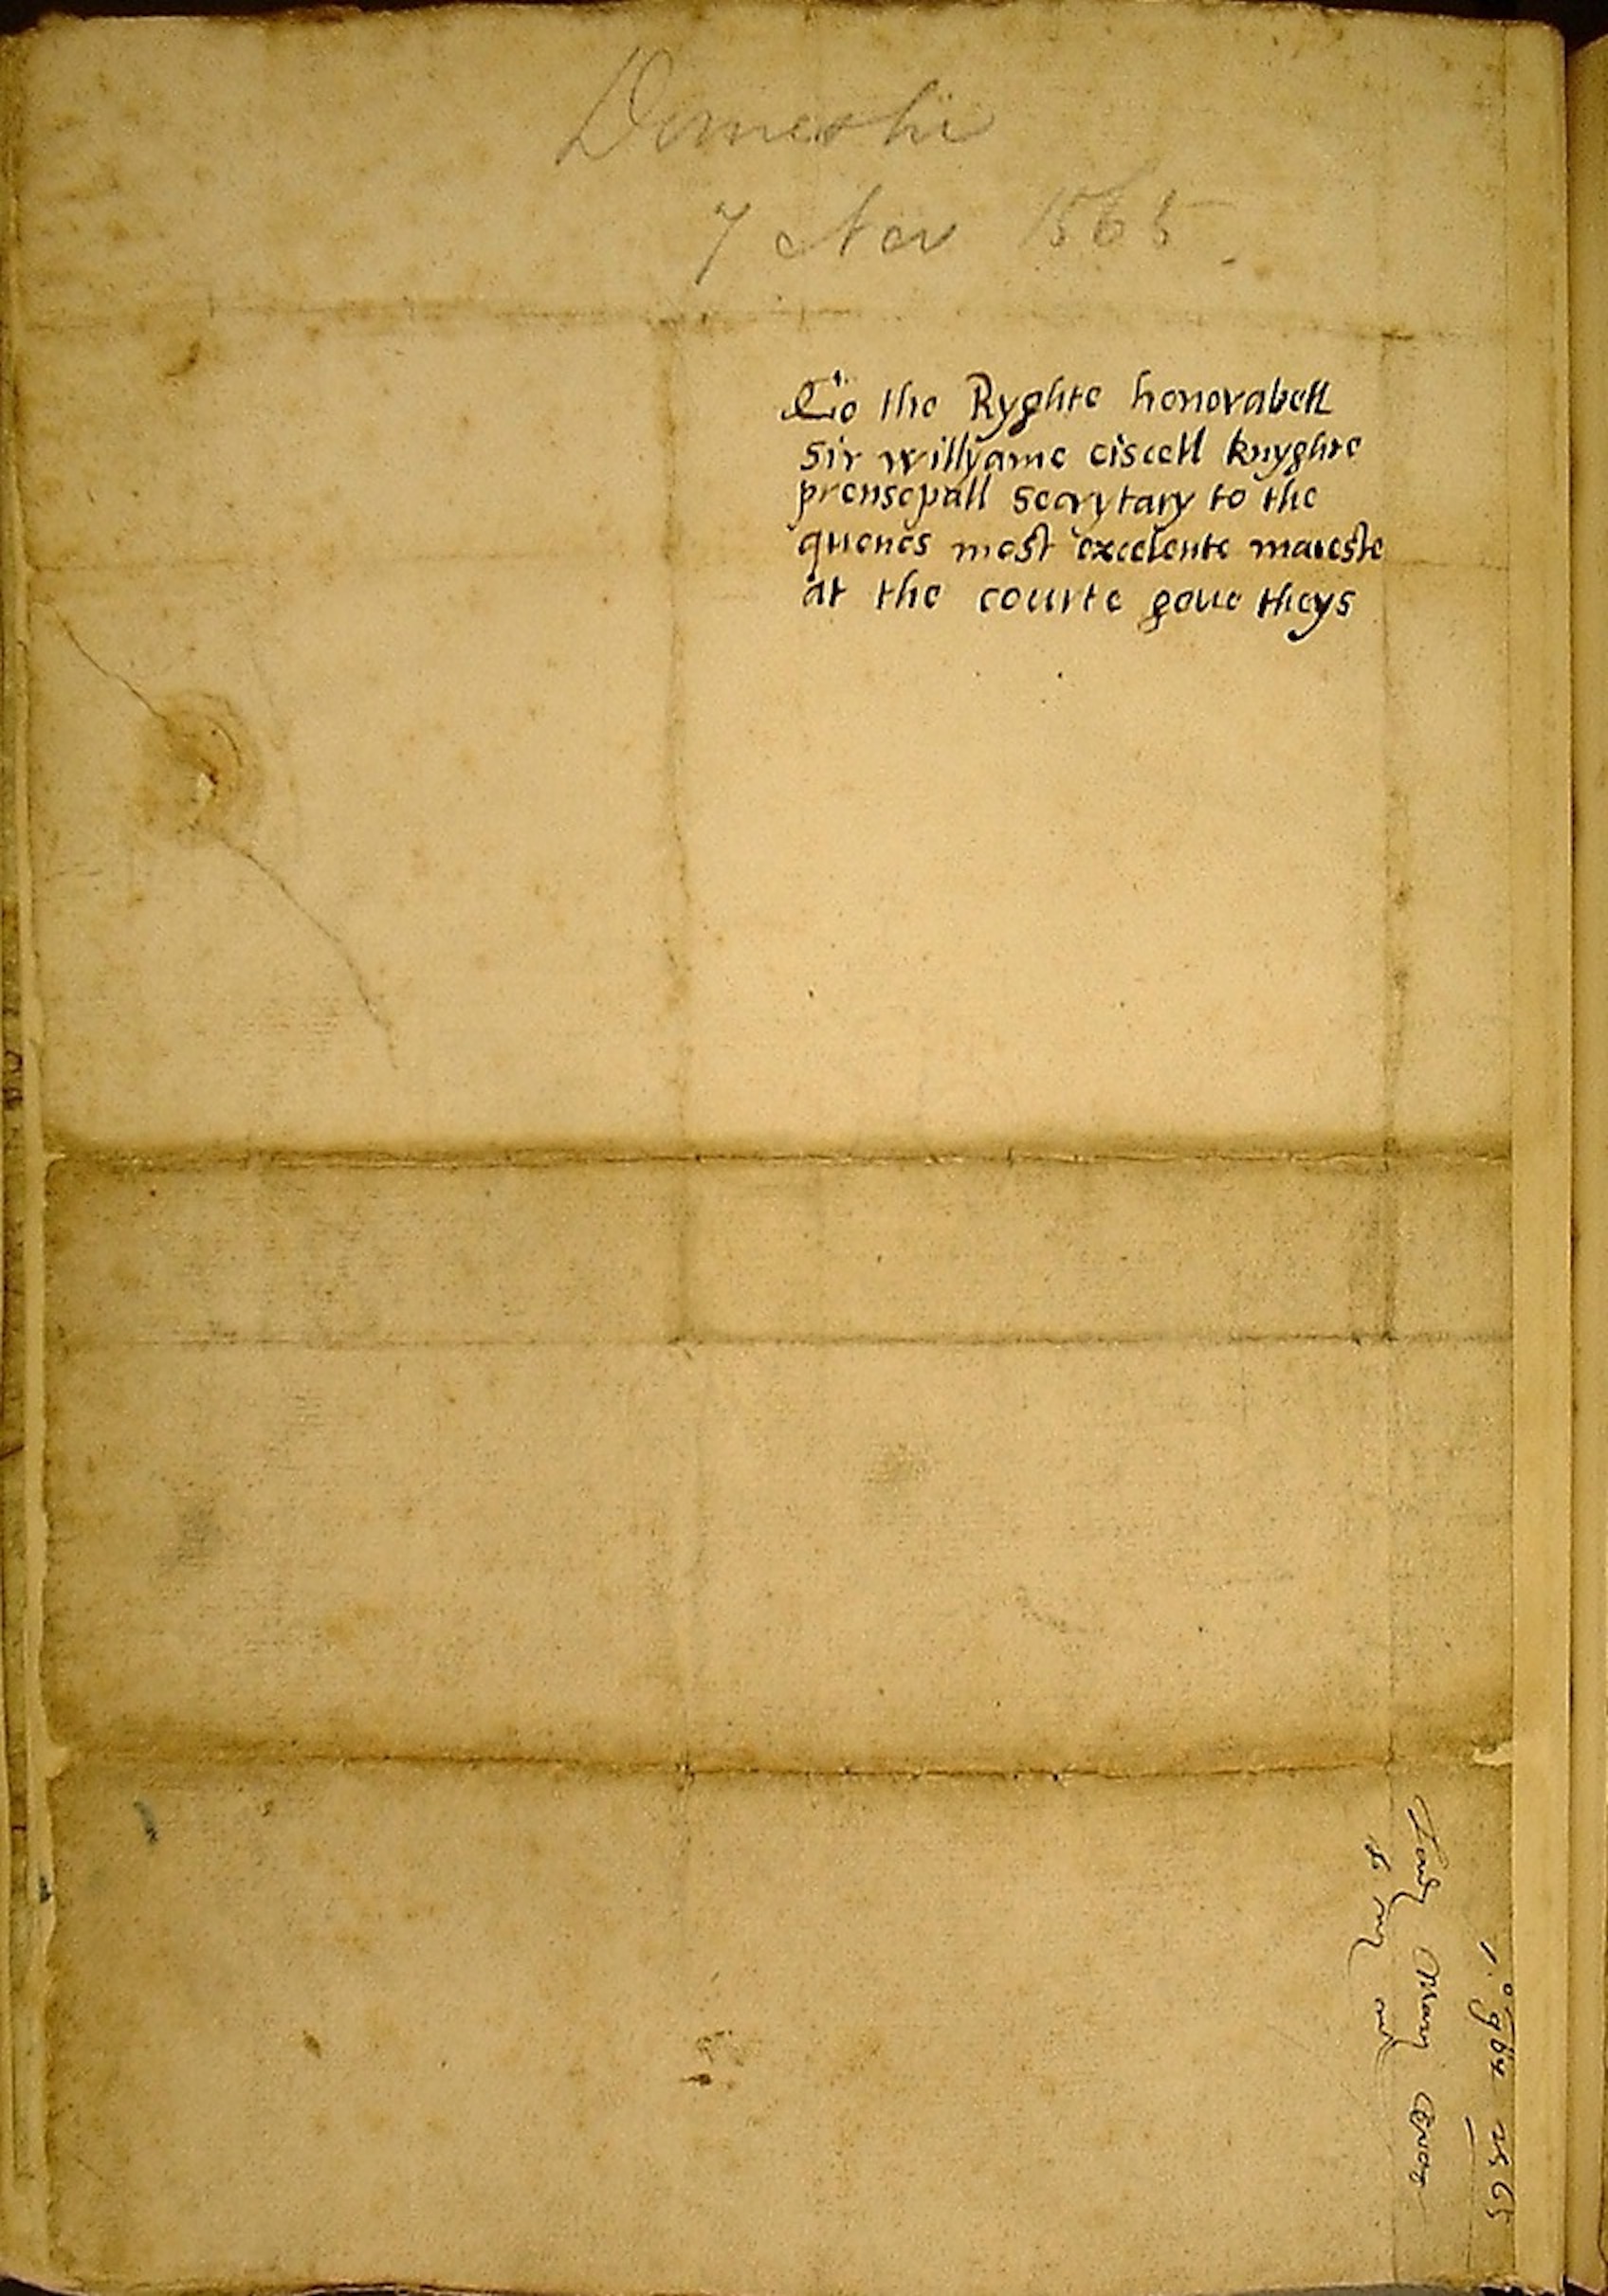 Domestic
7 Nov 1565.
To the Ryghte honorabell
Sir willyame ciscell knyghte
prensepall secrytary to the
quenes most excelente maieste
at the courte geue theys
1565
Lady Mary Gray
to my